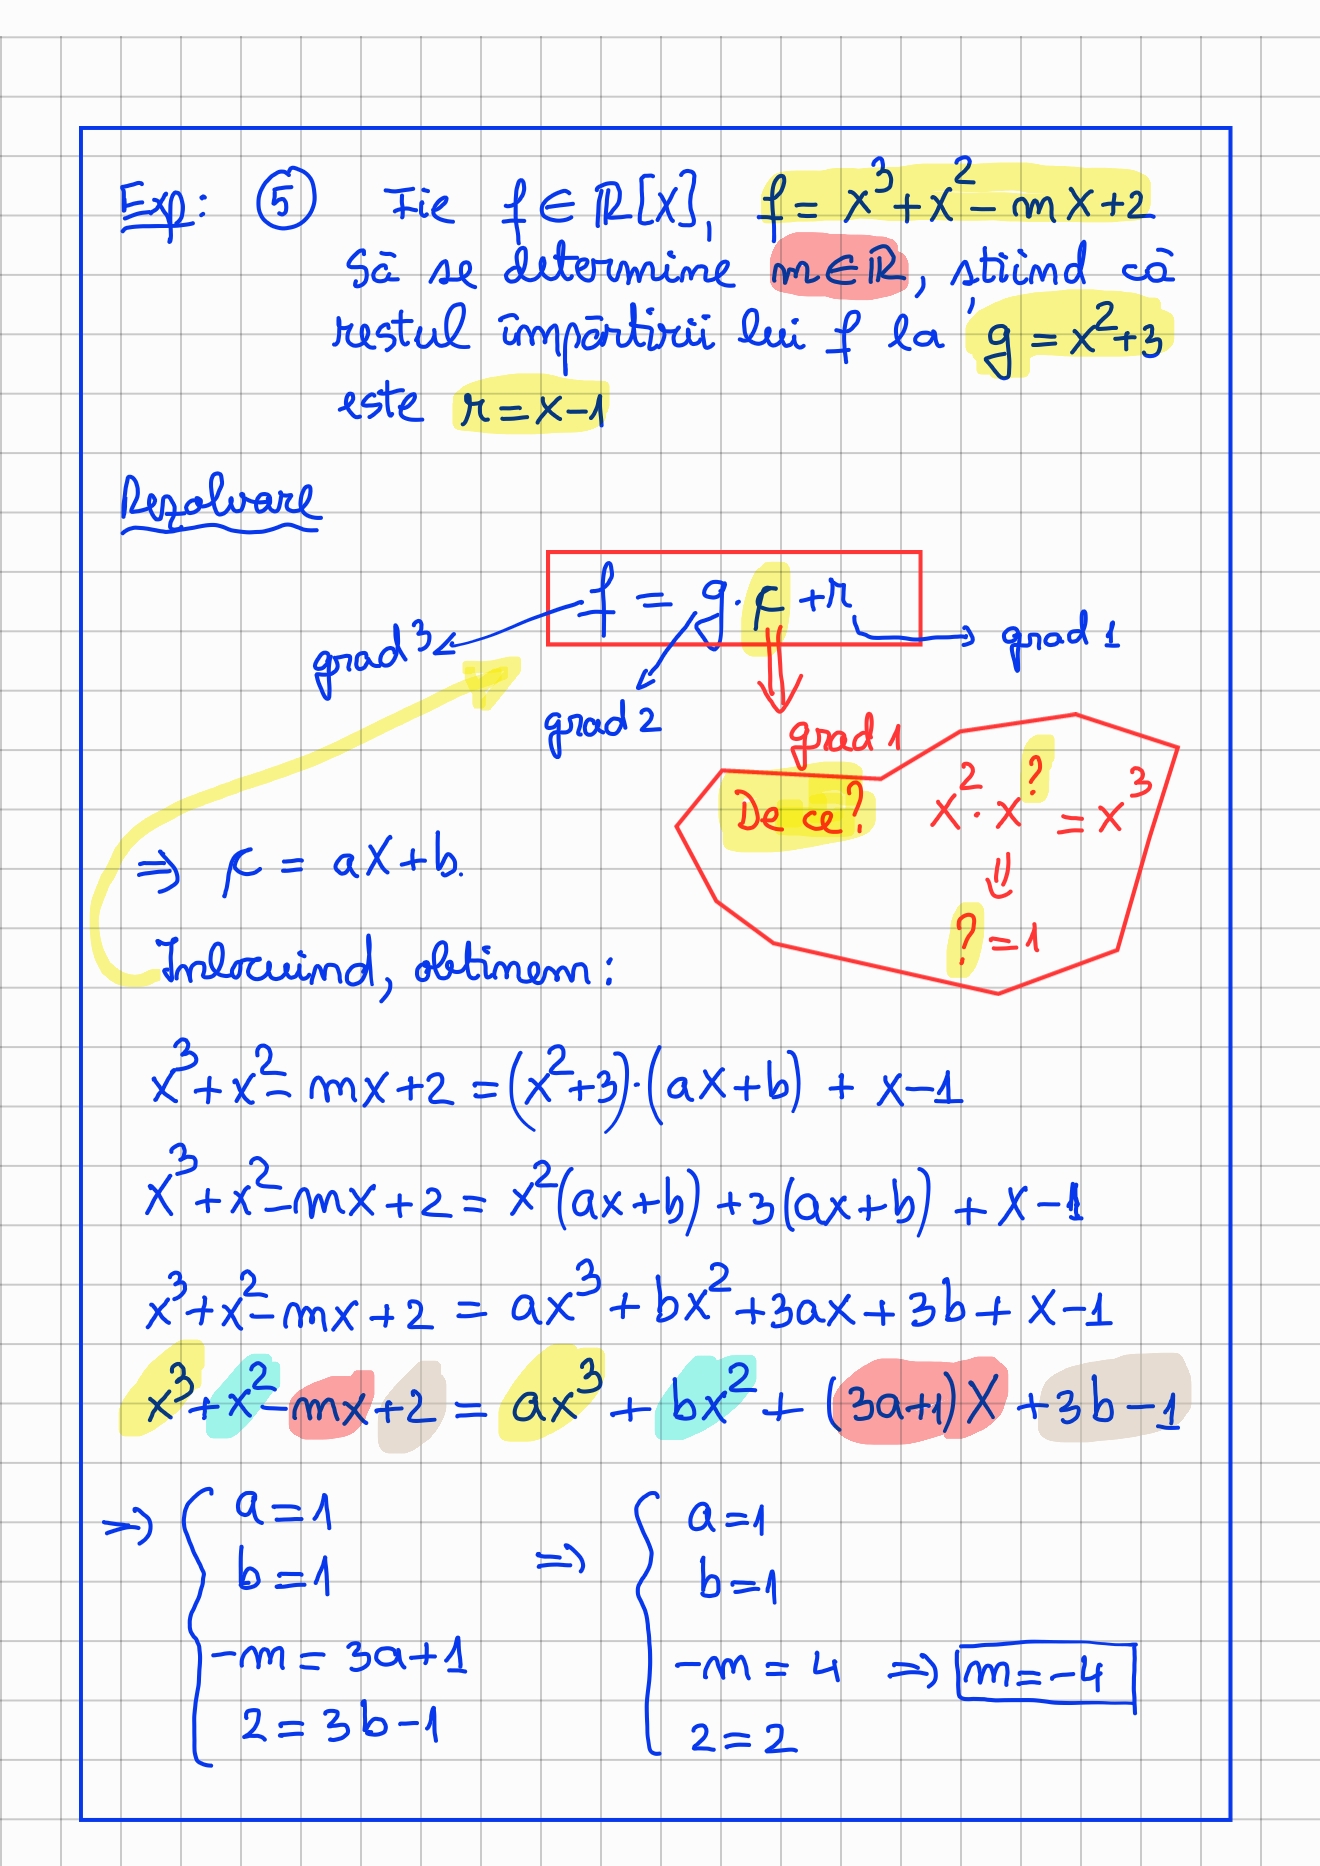 Exp: 5 Fie f ∈ R[X], f = x³ + x² - mx + 2
Să se determine m ∈ R, știind că
restul împărțirii lui f la g = x² + 3
este r = x - 1
Rezolvare
f = g · c + r
grad 3
grad 1
grad 2
grad 1
De ce? x² · x^? = x³
⇓
? = 1
⇒ c = aX + b.
Înlocuind, obținem:
x³ + x² - mx + 2 = (x² + 3) · (aX + b) + x - 1
x³ + x² - mx + 2 = x²(ax + b) + 3(ax + b) + x - 1
x³ + x² - mx + 2 = ax³ + bx² + 3ax + 3b + x - 1
x³ + x² - mx + 2 = ax³ + bx² + (3a+1)X + 3b - 1
⇒ { a = 1 ⇒ { a = 1
b = 1 b = 1
-m = 3a + 1 -m = 4 ⇒ m = -4
2 = 3b - 1 2 = 2